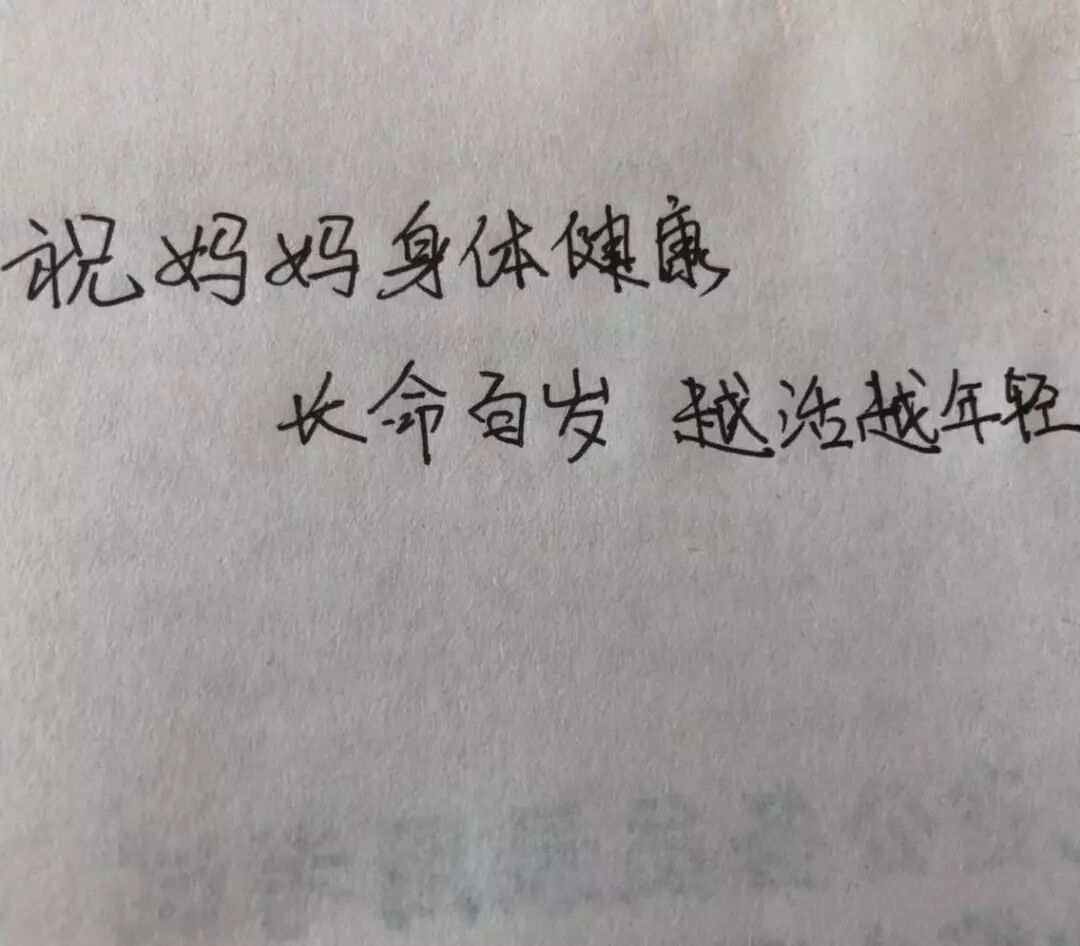 祝妈妈身体健康
长命百岁 越活越年轻